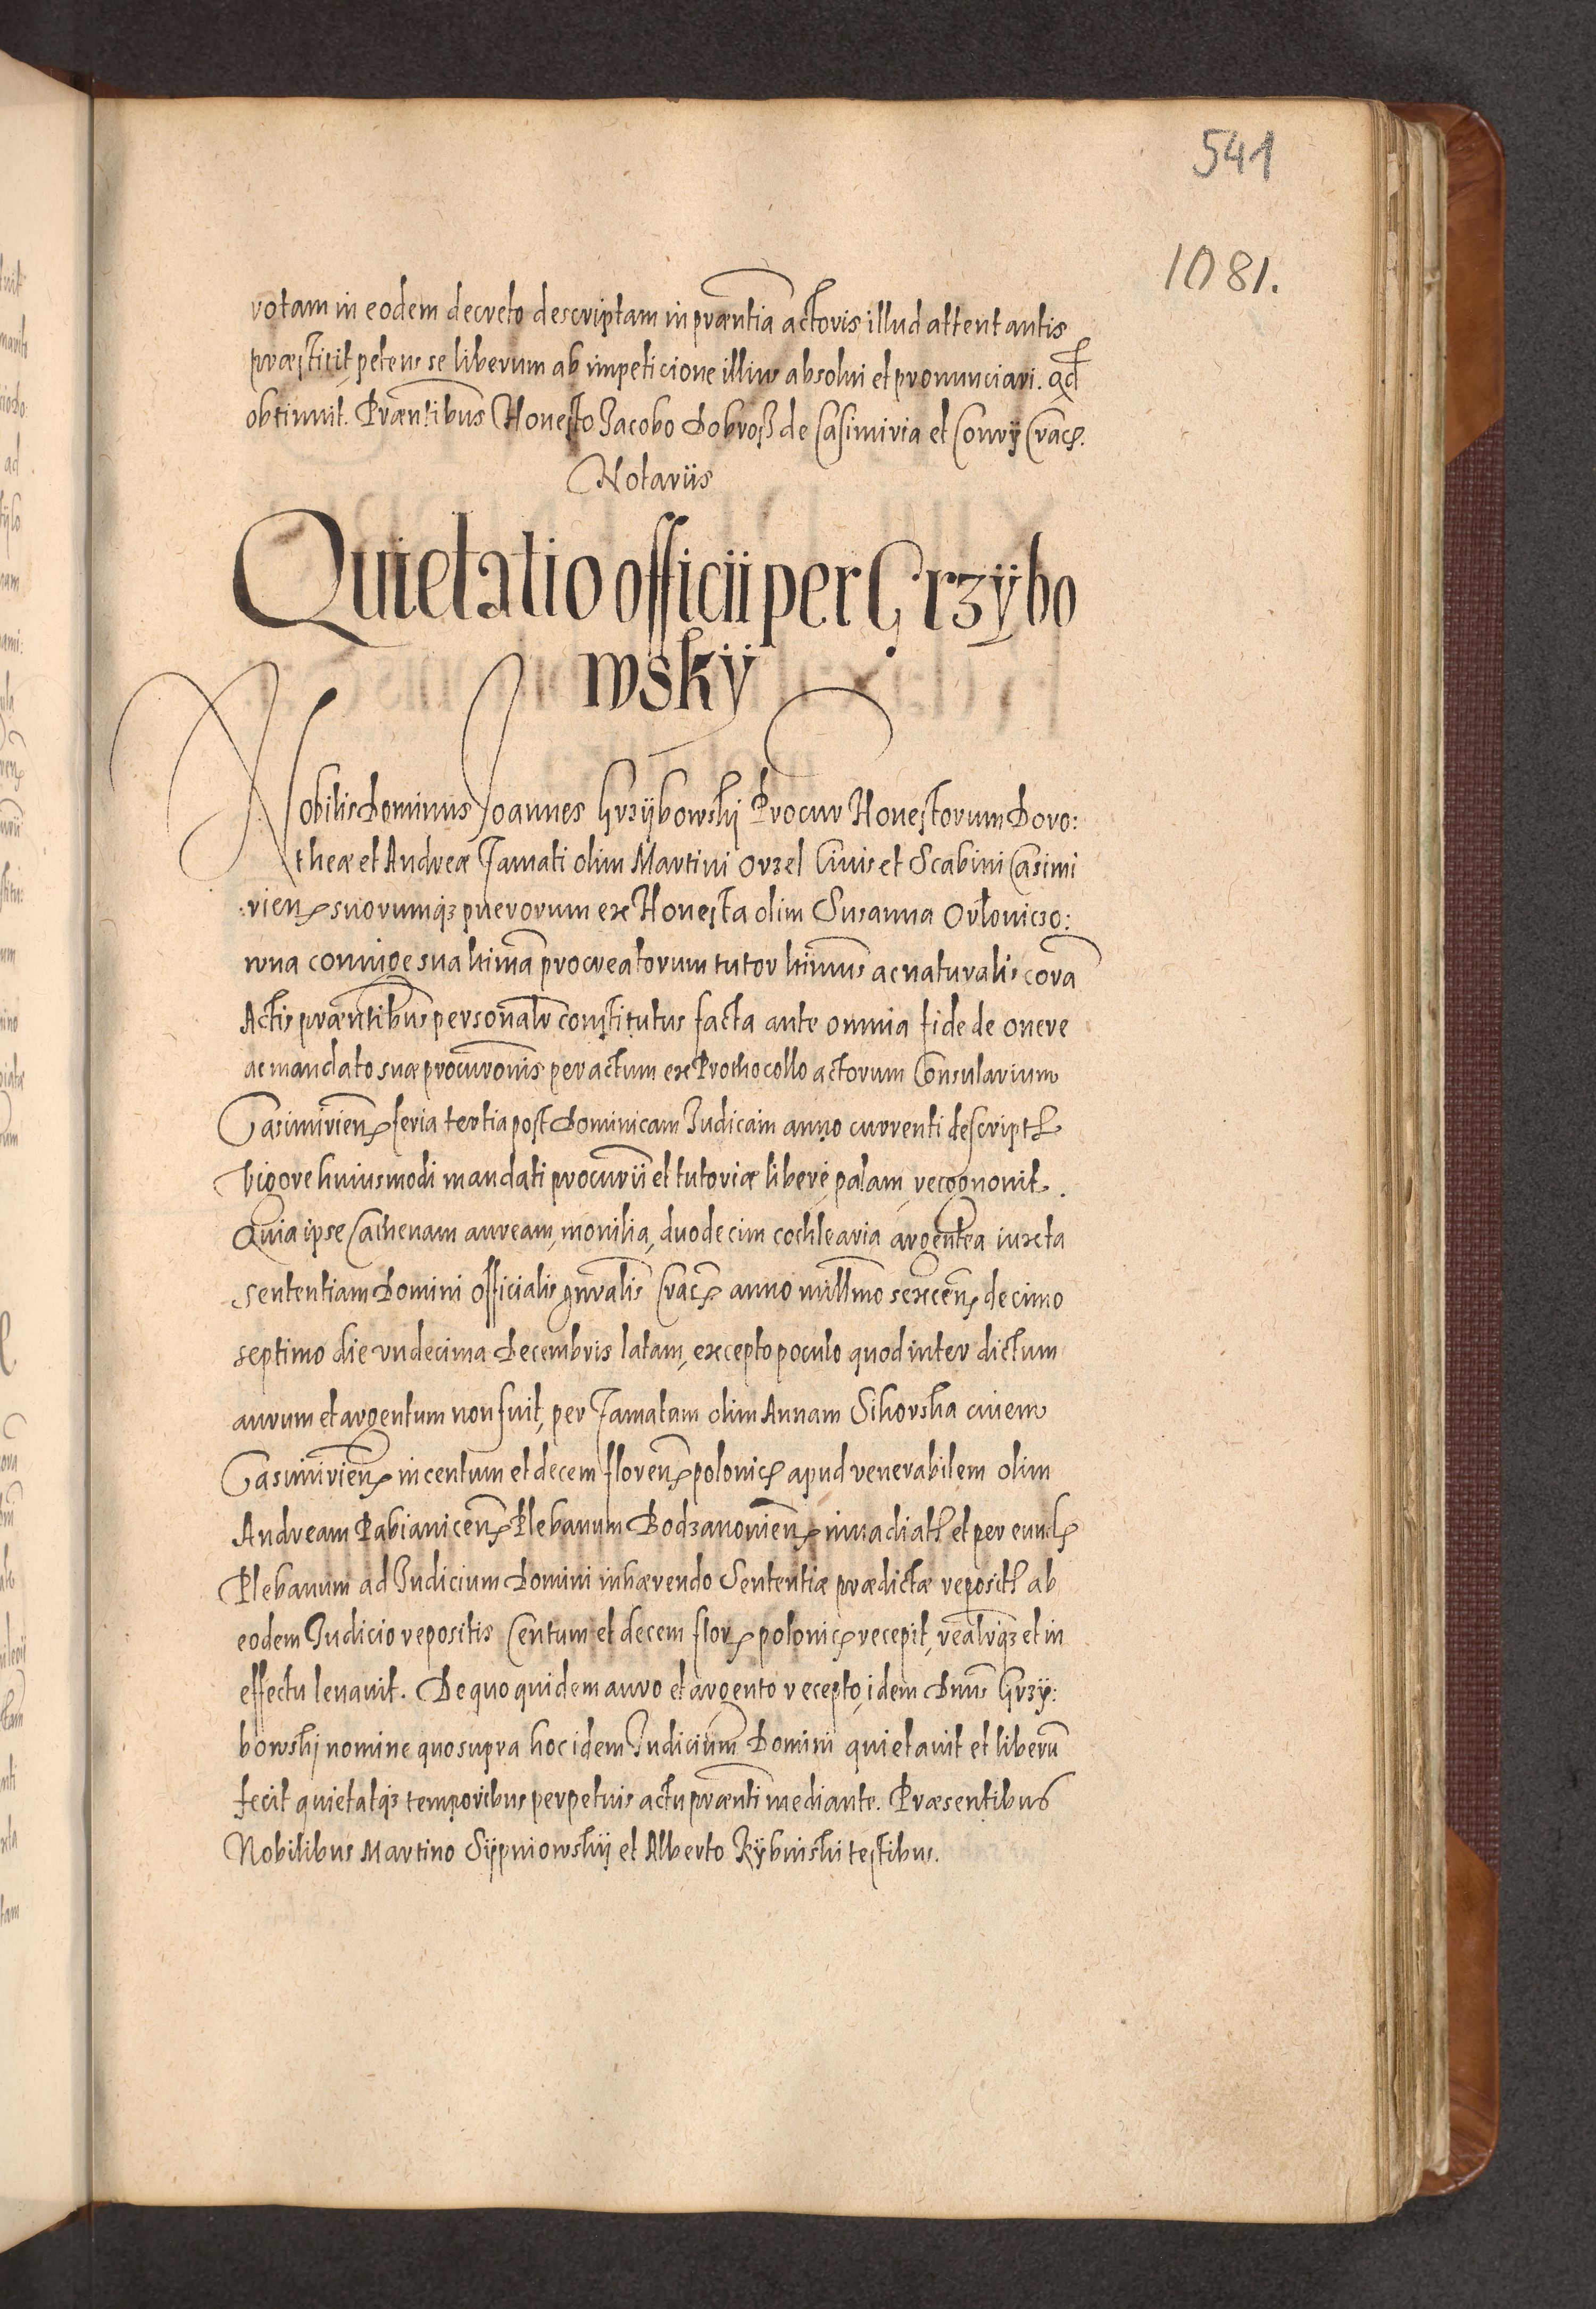 541
1081.
rotam in eodem decreto descriptam in præntia actoris illud attentantis
præstitit petens se liberum ab impeticione illius absolui et pronunciari. qd
obtinuit. Præntibus Honesto Jacobo Dobroß de Casimiria et Conrÿ Crac.
Notariis
Quietatio officii per Grzÿbo
wskÿ
Nobilis Dominus Joannes Grzÿbowski Procur Honestorum Doro:
theæ et Andreæ Famati olim Martini Orzel Ciuis et Scabini Casimi
rien suorumq3 puerorum ex Honesta olim Susanna Orłowiczo:
wna coniuge sua ltima procreatorum tutor ltimus ac naturalis cora
Actis præntibus personalr constitutus facta ante omnia fide de onere
ac mandato suæ procuronis per actum ex Prothocollo actorum Consularium
Casimirien feria tertia post Dominicam Judicam anno currenti descript
vigore huiusmodi mandati procurii et tutoriæ libere palam recognouit.
Quia ipse Cathenam auream, monilia, duodecim cochlearia argentea iuxta
sententiam Domini Officialis gnralis Crac anno millmo sexcen decimo
septimo die vndecima Decembris latam, excepto poculo quod inter dictum
aurum et argentum non fuit, per Famatam olim Annam Sikorska ciuem
Casimirien in centum et decem floren polonic apud venerabilem olim
Andream Pabianicen Plebanum Bodzanouien inuadiat et per eund
Plebanum ad Judicium Domini inhærendo Sententiæ prædictæ reposit ab
eodem Judicio repositis Centum et decem flor polonic recepit, realrq3 et in
effectu leuauit. De quo quidem auro et argento recepto, idem Dnus Grzÿ:
bowski nomine quo supra hoc idem Judicium Domini quietauit et liberu
fecit quietatq3 temporibus perpetuis actu prænti mediante. Præsentibus
Nobilibus Martino Sÿpniowskÿ et Alberto Rÿbinski testibus.